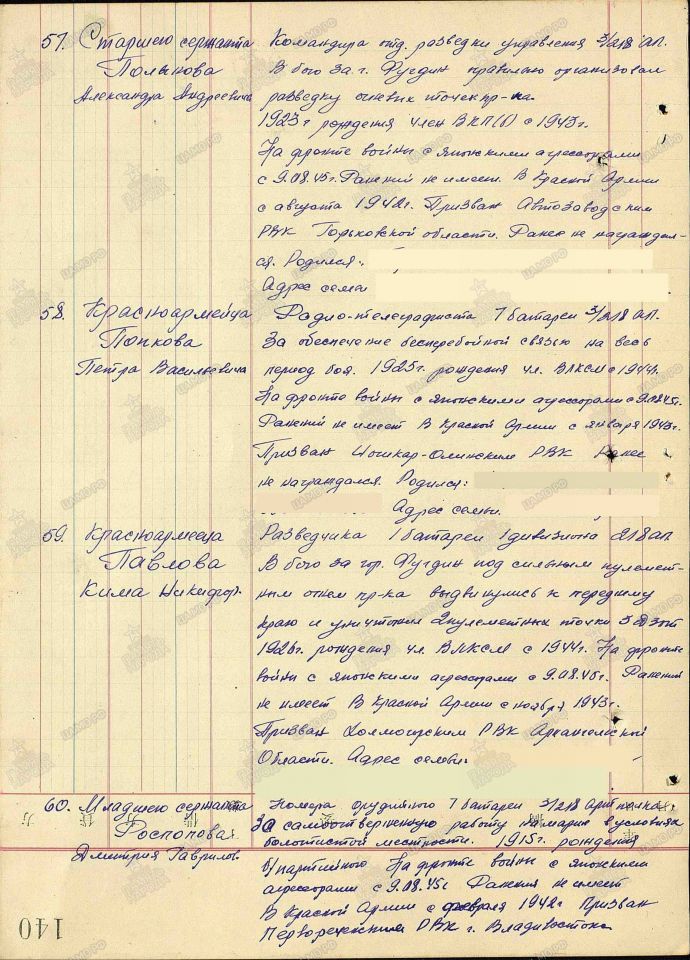 57. Старшего сержанта
Полынова
Александра Андреевича
Командира отд. разведки управления 3/218 АП.
В бою за г. Фугдин правильно организовал
разведку огневых точек пр-ка.
1923г рождения член ВКП(б) с 1943г.
На фронте войны с японскими агрессорами
с 9.08.45г. Ранений не имеет. В Красной Армии
с августа 1942г. Призван Автозаводским
РВК Горьковской области. Ранее не награждал-
ся. Родился:
Адрес семьи
58. Красноармейца
Попкова
Петра Васильевича
Радио-телеграфиста 7 батареи 3/218 АП.
За обеспечение бесперебойной связью на весь
период боя. 1925г. рождения чл. ВЛКСМ с 1944г.
На фронте войны с японскими агрессорами с 9.08.45г.
Ранений не имеет В Красной Армии с января 1943г.
Призван Йошкар-Олинским РВК Ранее
не награждался. Родился:
Адрес семьи.
59. Красноармейца
Павлова
Кима Никифор.
Разведчика 1 батареи 1 дивизиона 218 ап
В бою за гор. Фугдин под сильным пулемет-
ным огнем пр-ка выдвинулись к переднему
краю и уничтожил 2 пулеметных точки
1926г. рождения чл. ВЛКСМ с 1944г. На фронте
войны с японскими агрессорами с 9.08.45г. Ранений
не имеет В Красной Армии с ноября 1943г.
Призван Холмогорским РВК Архангельской
Области. Адрес семьи:
60. Младшего сержанта
Роспопова
Дмитрия Гаврилов
Номера орудийного 7 батареи 3/218 Арт полка.
За самоотверженную работу на марше в условиях
болотистой местности. 1915г. рождения
б/партийного На фронте войны с японскими
агрессорами с 9.08.45г Ранения не имеет
В Красной Армии с февраля 1942г Призван
Первореченским РВК г. Владивостока
140